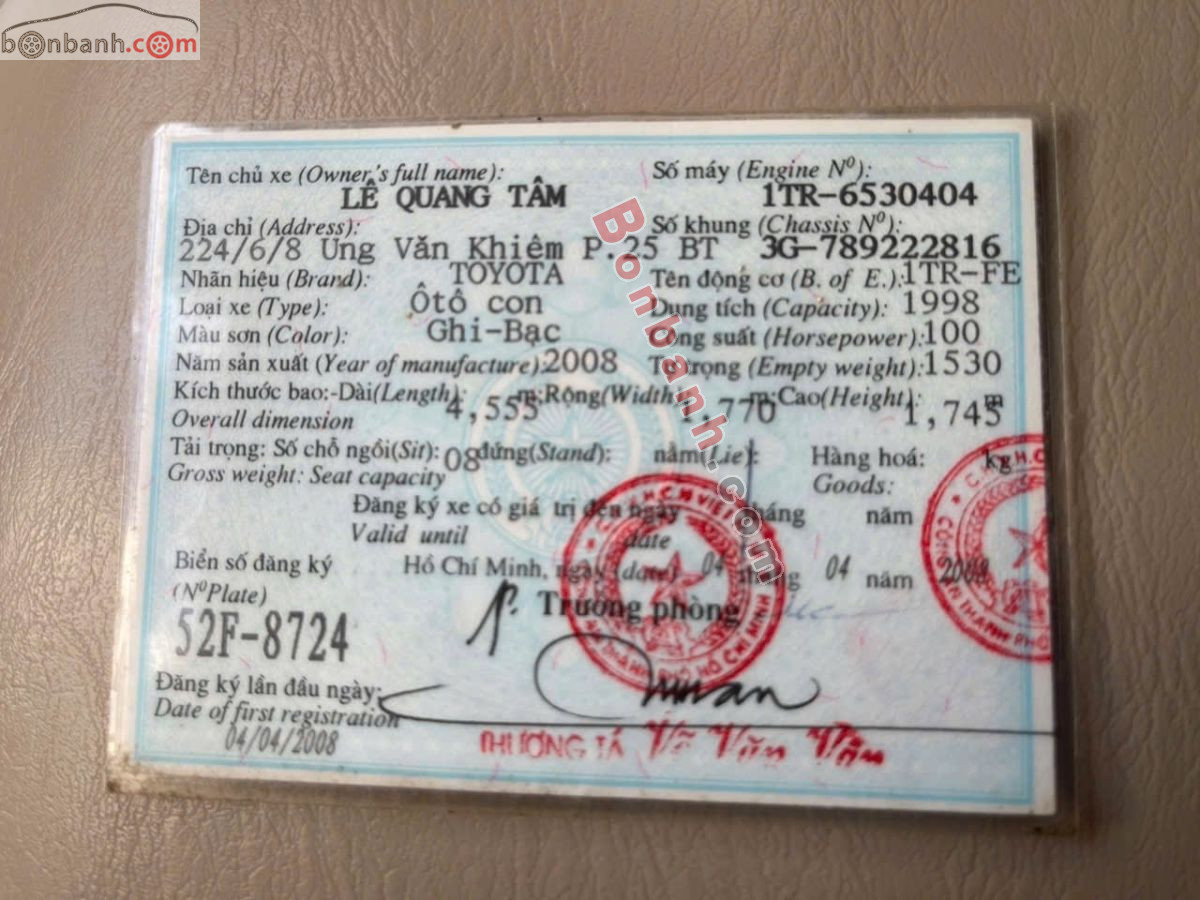 bonbanh.com
Tên chủ xe (Owner's full name):
LÊ QUANG TÂM
Địa chỉ (Address):
224/6/8 Ung Văn Khiêm P.25 BT
Nhãn hiệu (Brand): TOYOTA
Loại xe (Type): Ôtô con
Màu sơn (Color): Ghi-Bạc
Năm sản xuất (Year of manufacture): 2008
Số máy (Engine Nº):
1TR-6530404
Số khung (Chassis Nº):
3G-789222816
Tên động cơ (B. of E.): 1TR-FE
Dung tích (Capacity): 1998
Công suất (Horsepower): 100
Tự trọng (Empty weight): 1530
Kích thước bao:-Dài(Length): 4,555 m;Rộng(Width): 1.770 m;Cao(Height): 1,745 m
Overall dimension
Tải trọng: Số chỗ ngồi(Sit): 08 đứng(Stand): nằm(Lie): Hàng hoá: kg
Gross weight: Seat capacity Goods:
Đăng ký xe có giá trị đến ngày tháng năm
Valid until date
Biển số đăng ký
(NºPlate)
52F-8724
Hồ Chí Minh, ngày (date) 04 tháng 04 năm 2008
Trưởng phòng
Đăng ký lần đầu ngày:
Date of first registration
04/04/2008
THƯỢNG TÁ Võ Văn Vân
Bonbanh.com